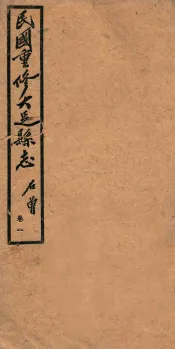 民國重修大足縣志
石曾
卷一